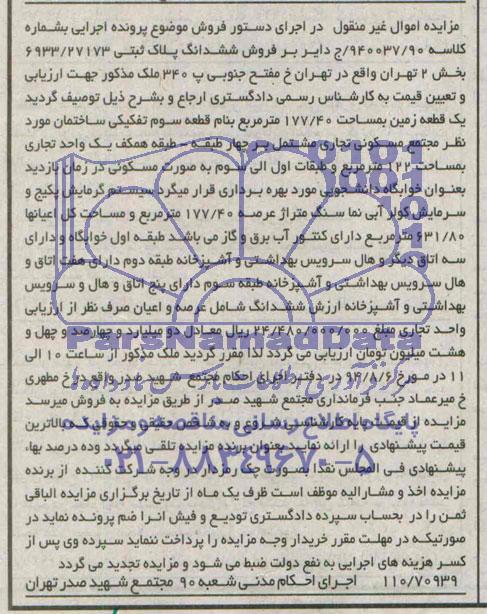 مزایده اموال غیر منقول در اجرای دستور فروش موضوع پرونده اجرایی بشماره
کلاسه ۹۴۰۰۳۷/۹۰/ج دایر بر فروش ششدانگ پلاک ثبتی ۶۹۳۳/۲۷۱۷۳
بخش ۲ تهران واقع در تهران خ مفتح جنوبی پ ۳۴۰ ملک مذکور جهت ارزیابی
و تعیین قیمت به کارشناس رسمی دادگستری ارجاع و بشرح ذیل توصیف گردید
یک قطعه زمین بمساحت ۱۷۷/۴۰ مترمربع بنام قطعه سوم تفکیکی ساختمان مورد
نظر مجتمع مسکونی تجاری مشتمل بر چهار طبقه - طبقه همکف یک واحد تجاری
بمساحت ۱۲۲ مترمربع و طبقات اول الی سوم به صورت مسکونی در زمان بازدید
بعنوان خوابگاه دانشجویی مورد بهره برداری قرار میگرد سیستم گرمایش پکیج و
سرمایش کولر آبی نما سنگ متراژ عرصه ۱۷۷/۴۰ مترمربع و مساحت کل اعیانها
۶۳۱/۸۰ مترمربع دارای کنتور آب برق و گاز می باشد طبقه اول خوابگاه و دارای
سه اتاق دیگر و هال سرویس بهداشتی و آشپزخانه طبقه دوم دارای هفت اتاق و
هال سرویس بهداشتی و آشپزخانه طبقه سوم دارای پنج اتاق و هال و سرویس
بهداشتی و آشپزخانه ارزش ششدانگ شامل عرصه و اعیان صرف نظر از ارزیابی
واحد تجاری مبلغ ۲۴/۴۸۰/۰۰۰/۰۰۰ ریال معادل دو میلیارد و چهارصد و چهل و
هشت میلیون تومان ارزیابی می گردد لذا مقرر گردید ملک مذکور از ساعت ۱۰ الی
۱۱ در مورخ ۹۴/۸/۶ در دفتر اجرای احکام مجتمع شهید صدر واقع در خ مطهری
خ میرعماد جنب فرمانداری مجتمع شهید صدر از طریق مزایده به فروش میرسد
مزایده از قیمت پایه کارشناسی شروع و هر شخص حقیقی و حقوقی که بالاترین
قیمت پیشنهادی را ارائه نماید بعنوان برنده مزایده تلقی میگردد وده درصد بهاء
پیشنهادی فی المجلس نقدا بصورت چک رمزدار در وجه شرکت کننده از برنده
مزایده اخذ و مشارالیه موظف است ظرف یک ماه از تاریخ برگزاری مزایده الباقی
ثمن را در بحساب سپرده دادگستری تودیع و فیش انرا ضم پرونده نماید در
صورتیکه در مهلت مقرر خریدار وجه مزایده را پرداخت ننماید سپرده وی پس از
کسر هزینه های اجرایی به نفع دولت ضبط می شود و مزایده تجدید می گردد
۱۱۰/۷۰۹۳۹ اجرای احکام مدنی شعبه ۹۰ مجتمع شهید صدر تهران
ParsNamadData
پایگاه اطلاع رسانی مناقصه و مزایده
۰۲۱-۸۸۳۴۹۶۷۰-۵